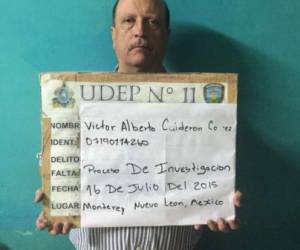 UDEP Nº 11
NOMBRE Victor Alberto Calderon
IDENT: 07190174260
DELITO
FALTA: Proceso De Investigacion
FECHA 16 De Julio Del 2015
LUGAR: Monterrey Nuevo Leon, Mexico